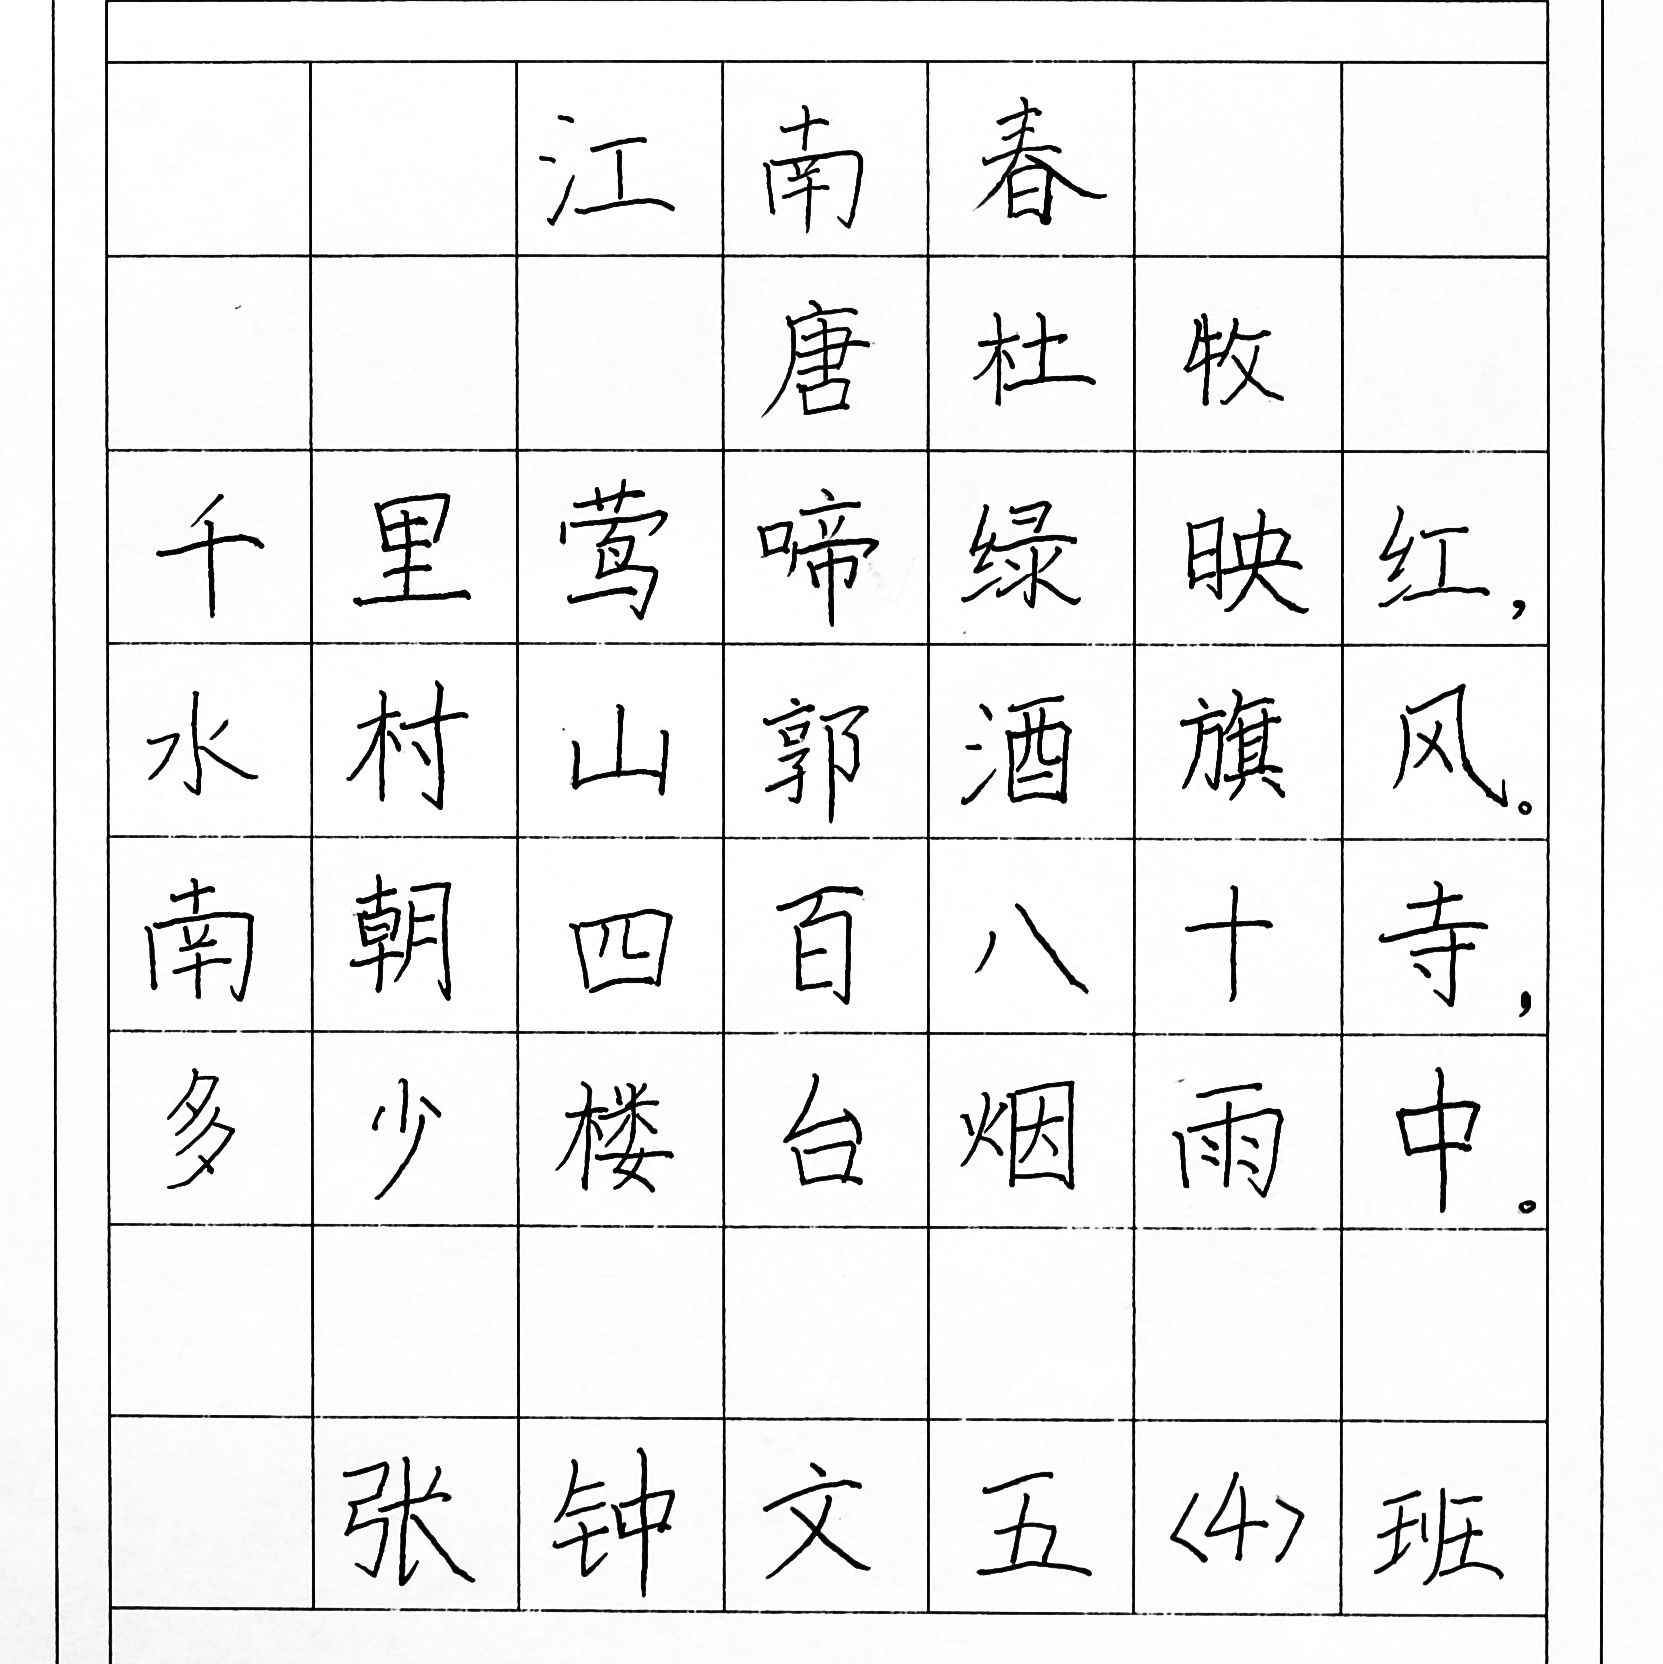 江南春
唐杜牧
千里莺啼绿映红，
水村山郭酒旗风。
南朝四百八十寺，
多少楼台烟雨中。
张钟文五〈4〉班